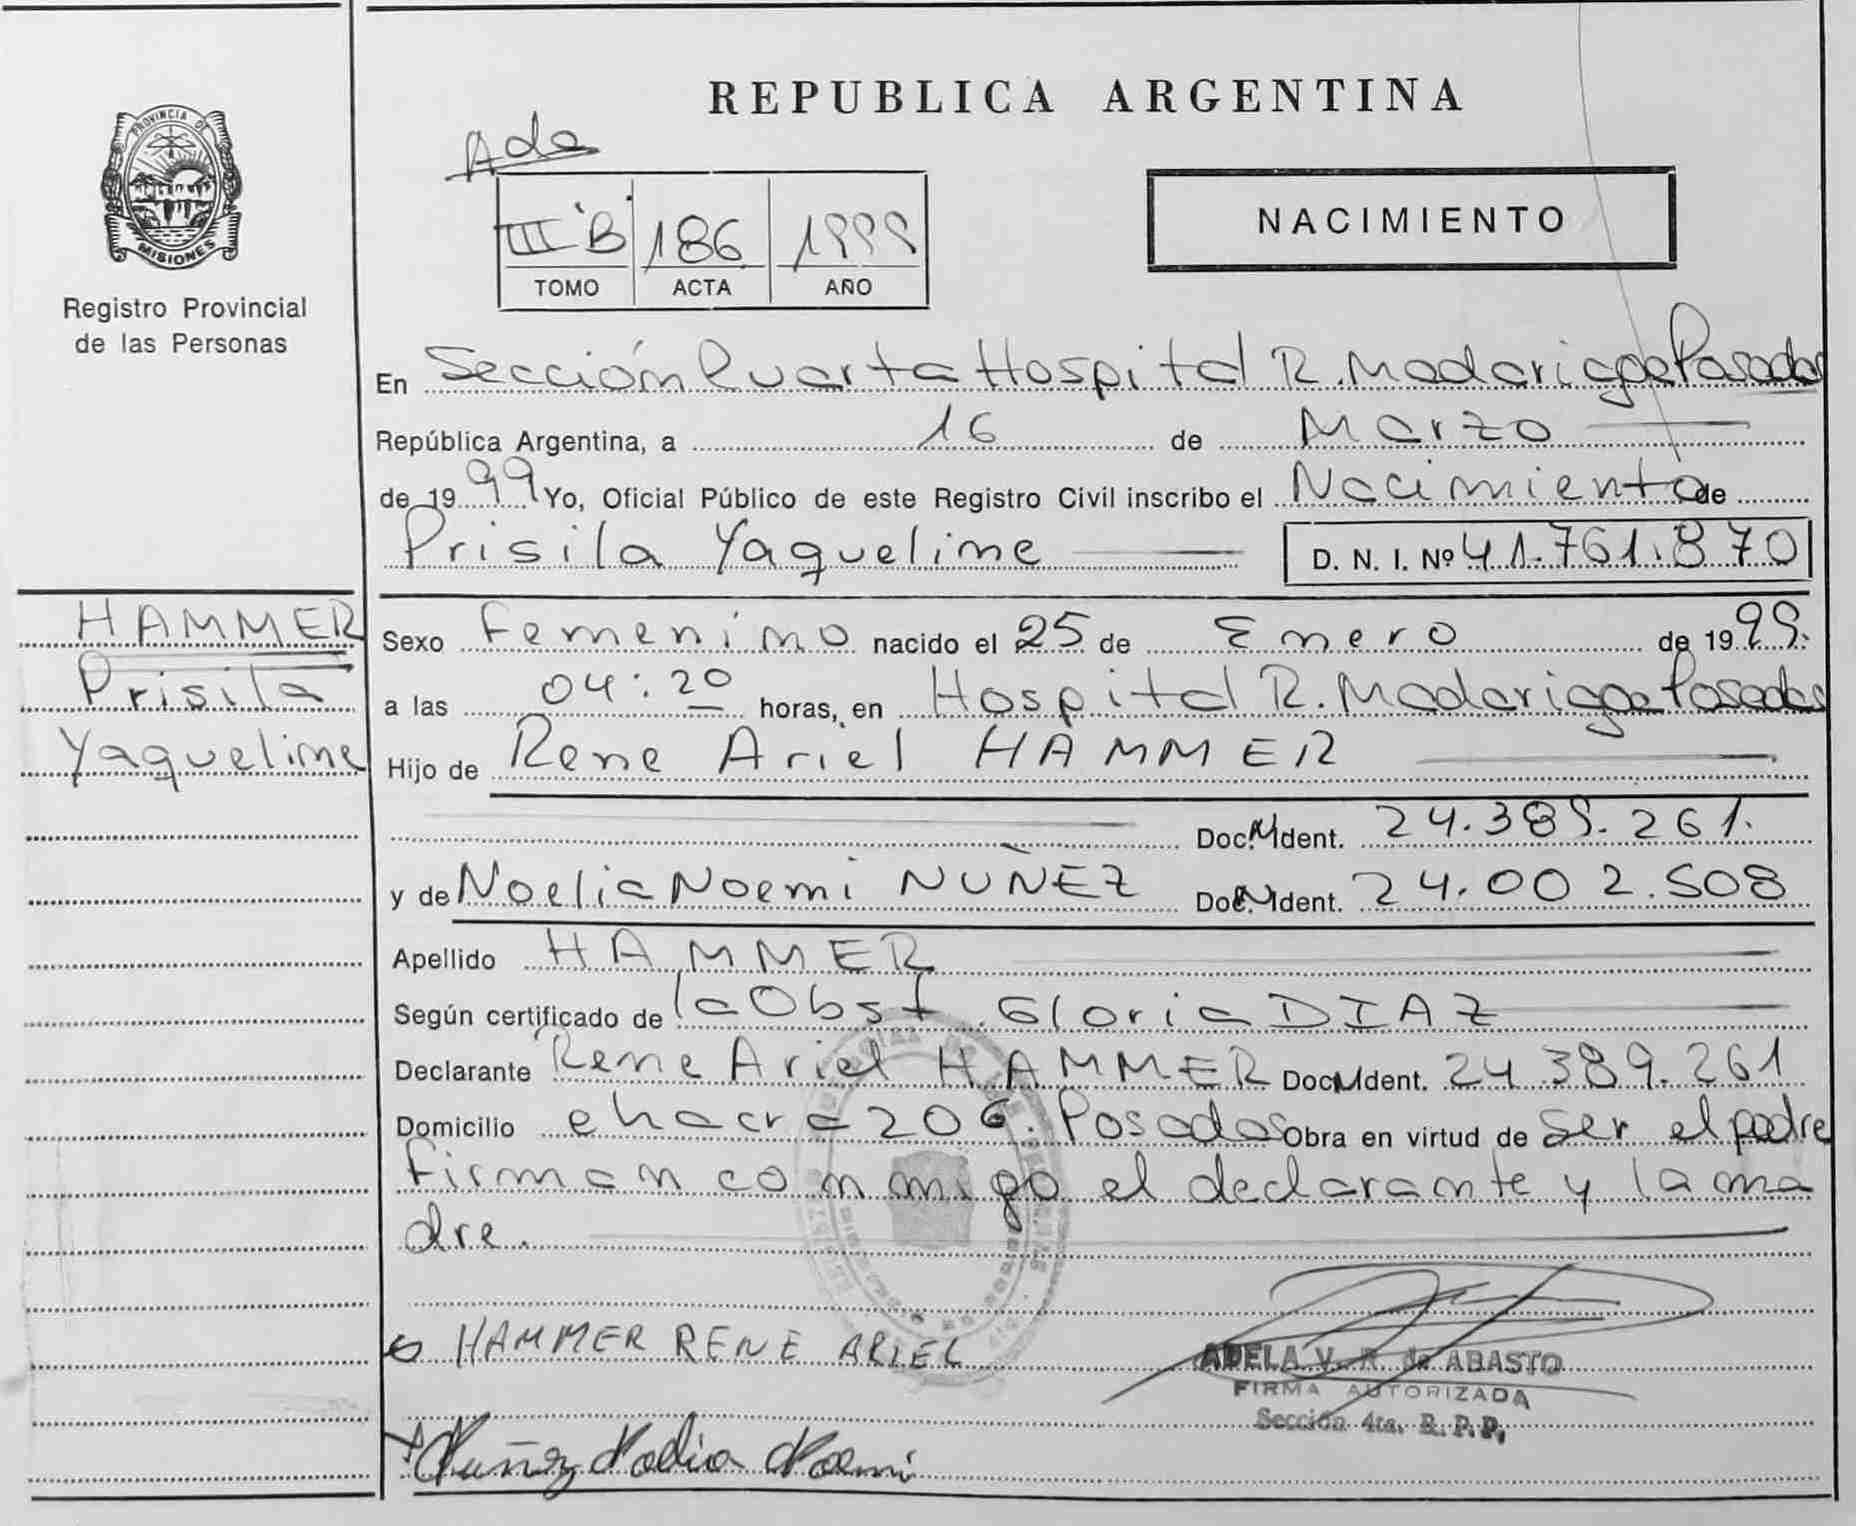 REPUBLICA ARGENTINA
PROVINCIA DE
MISIONES
Registro Provincial
de las Personas
Ada
III "B" 186 1999
TOMO ACTA AÑO
NACIMIENTO
En Sección Cuarta Hospital R. Madariaga Posadas
República Argentina, a 16 de Marzo
de 1999 Yo, Oficial Público de este Registro Civil inscribo el Nacimiento de
Prisila Yaqueline D. N. I. Nº 41.761.870
HAMMER
Prisila
Yaqueline
Sexo Femenino nacido el 25 de Enero de 1999.
a las 04:20 horas, en Hospital R. Madariaga Posadas
Hijo de Rene Ariel HAMMER
Doc. Ident. 24.389.261.
y de Noelia Noemi NUÑEZ Doc. Ident. 24.002.508
Apellido HAMMER
Según certificado de la Obst. Gloria DIAZ
Declarante Rene Ariel HAMMER Doc. Ident. 24 389.261
Domicilio chacra 206. Posadas Obra en virtud de ser el padre
Firman conmigo el declarante y la ma
dre.
HAMMER RENE ARIEL
ADELA V. R. de ABASTO
FIRMA AUTORIZADA
Sección 4ta. R. P. P.
Nuñez Noelia Noemi